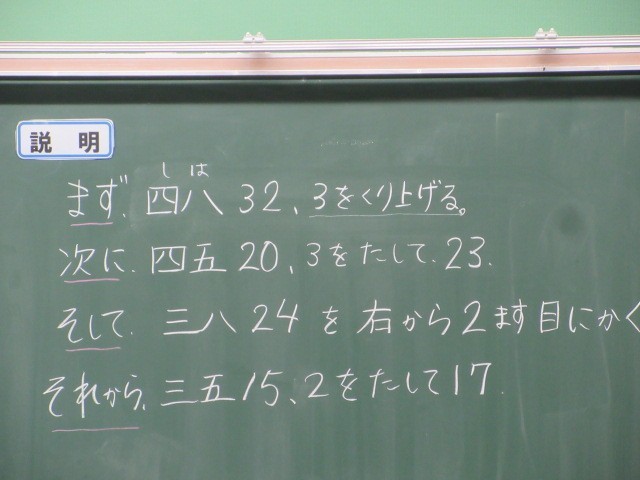 説明
しは
まず、四八32、3をくり上げる。
次に、四五20、3をたして、23.
そして、三八24を右から2ます目にかく
それから、三五15、2をたして17.